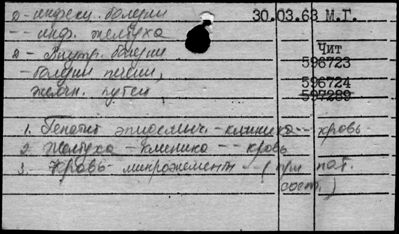 2- инфекц. болезни
30.03.68 М.Г.
-- инф. желтуха
2 - Внутр. болезни
Чит
596723
- болезни печени,
596724
желчн. путей
597289
1. Гепатит эпидемич. - клиника -- кровь
2. Желтуха - клиника -- кровь
3. Кровь- микроэлементы -- (при пат.
сост.)